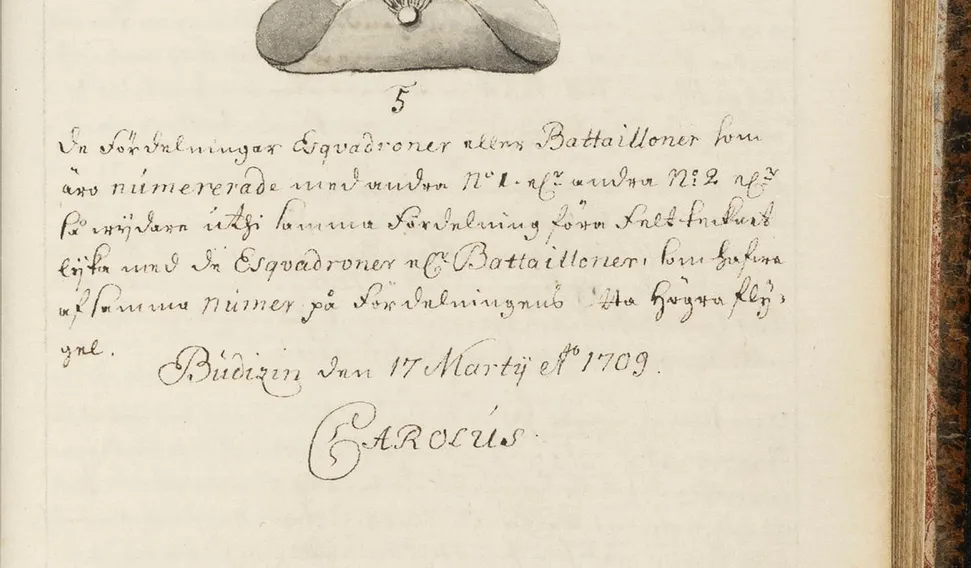 5
de Fördelningar Esqvadroner eller Battailloner som
äro númererade med andra N:o 1. elr andra N:o 2 elr
så wÿdare úthi samma Fördelning föra Felttecknet
lÿka med de Esqvadroner elr Battailloner, som hafwa
af samma númer på Fördelningens Högra flÿ-
gel.
Búdizin den 17 Martÿ Ao 1709.
CAROLÚS.